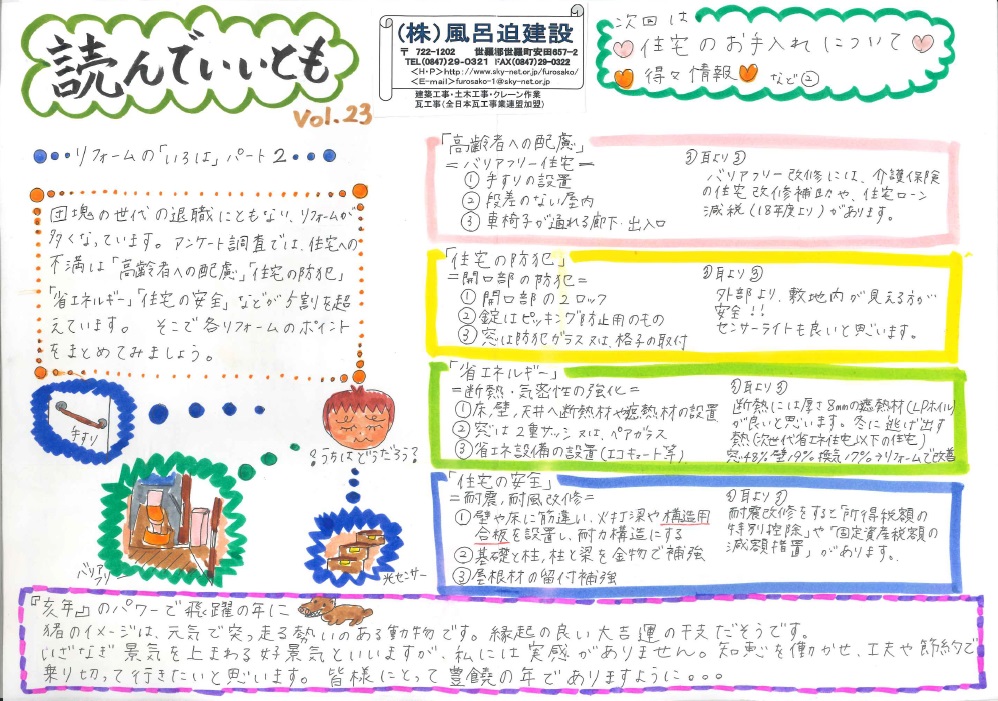 読んでいいとも
Vol.23
(株)風呂迫建設
〒 722-1202 世羅郡世羅町安田657-2
TEL(0847)29-0321 FAX(0847)29-0322
<H・P>http://www.sky-net.or.jp/furosako/
<E-mail>furosako-1@sky-net.or.jp
建築工事・土木工事・クレーン作業
瓦工事(全日本瓦工事業連盟加盟)
次回は
住宅のお手入れについて
得々情報 など②
リフォームの「いろは」パート2
団塊の世代の退職にともない、リフォームが
多くなっています。アンケート調査では、住宅への
不満は「高齢者への配慮」「住宅の防犯」
「省エネルギー」「住宅の安全」などが5割を超
えています。 そこで各リフォームのポイント
をまとめてみましょう。
手すり
うちはどうだろう?
バリアフリー
光センサー
「高齢者への配慮」
=バリアフリー住宅=
① 手すりの設置
② 段差のない屋内
③ 車椅子が通れる廊下・出入口
耳より
バリアフリー改修には、介護保険
の住宅改修補助や、住宅ローン
減税(18年度より)があります。
「住宅の防犯」
=開口部の防犯=
① 開口部の2ロック
② 錠はピッキング防止用のもの
③ 窓は防犯ガラス又は、格子の取付
耳より
外部より、敷地内が見える方が
安全!!
センサーライトも良いと思います。
「省エネルギー」
=断熱・気密性の強化=
① 床、壁、天井へ断熱材や遮熱材の設置
② 窓は2重サッシ又は、ペアガラス
③ 省エネ設備の設置(エコキュート等)
耳より
断熱には厚さ8mmの遮熱材(LPホイル)
が良いと思います。冬に逃げ出す
熱(次世代省エネ住宅以下の住宅)
窓48% 壁19% 換気17%をリフォームで改善
「住宅の安全」
=耐震、耐風改修=
① 壁や床に筋違い、火打梁や構造用
合板を設置し、耐力構造にする
② 基礎と柱、柱と梁を金物で補強
③ 屋根材の留付補強
耳より
耐震改修をすると「所得税額の
特別控除」や「固定資産税額の
減額措置」があります。
『亥年』のパワーで飛躍の年に
猪のイメージは、元気で突っ走る勢いのある動物です。縁起の良い大吉運の干支だそうです。
いざなぎ景気を上まわる好景気といいますが、私には実感がありません。知恵を働かせ、工夫や節約で
乗り切って行きたいと思います。皆様にとって豊饒の年でありますように。。。